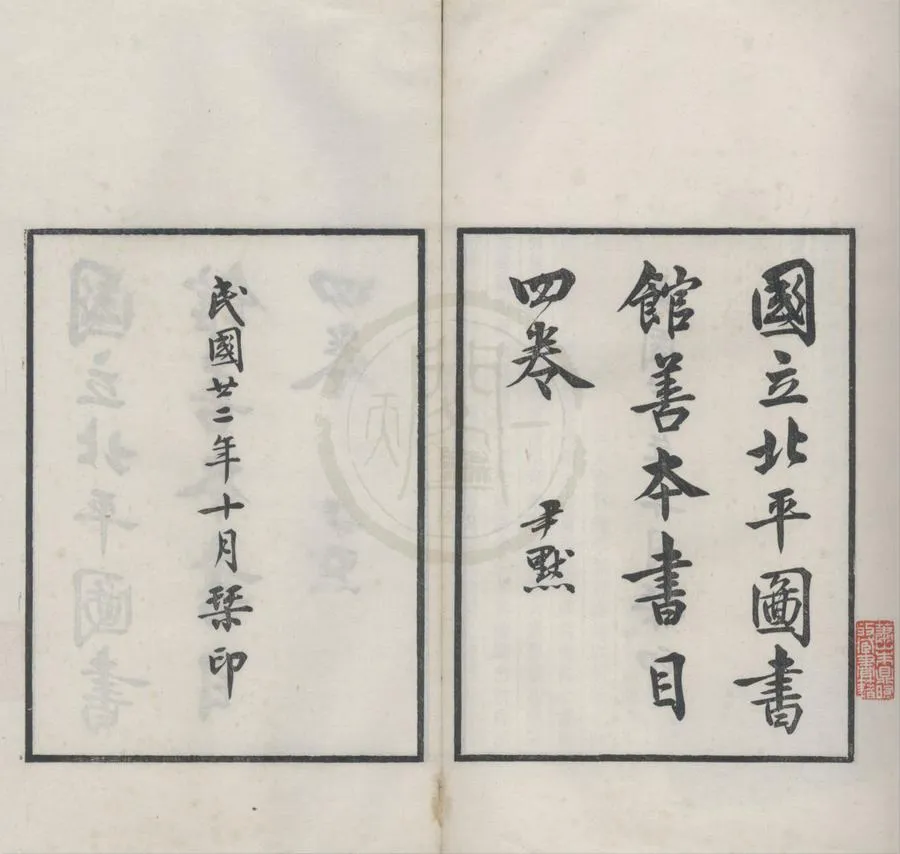 國立北平圖書
館善本書目
四卷
尹默
民國廿二年十月琹印